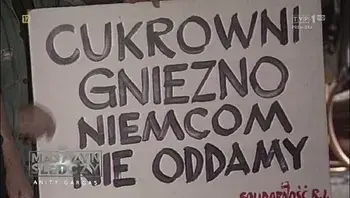 12
TVP1 HD
CUKROWNI
GNIEZNO
NIEMCOM
NIE ODDAMY
MAGAZYN
ŚLEDCZY
ANITY GARGAS
SOLIDARNOŚĆ R.I.